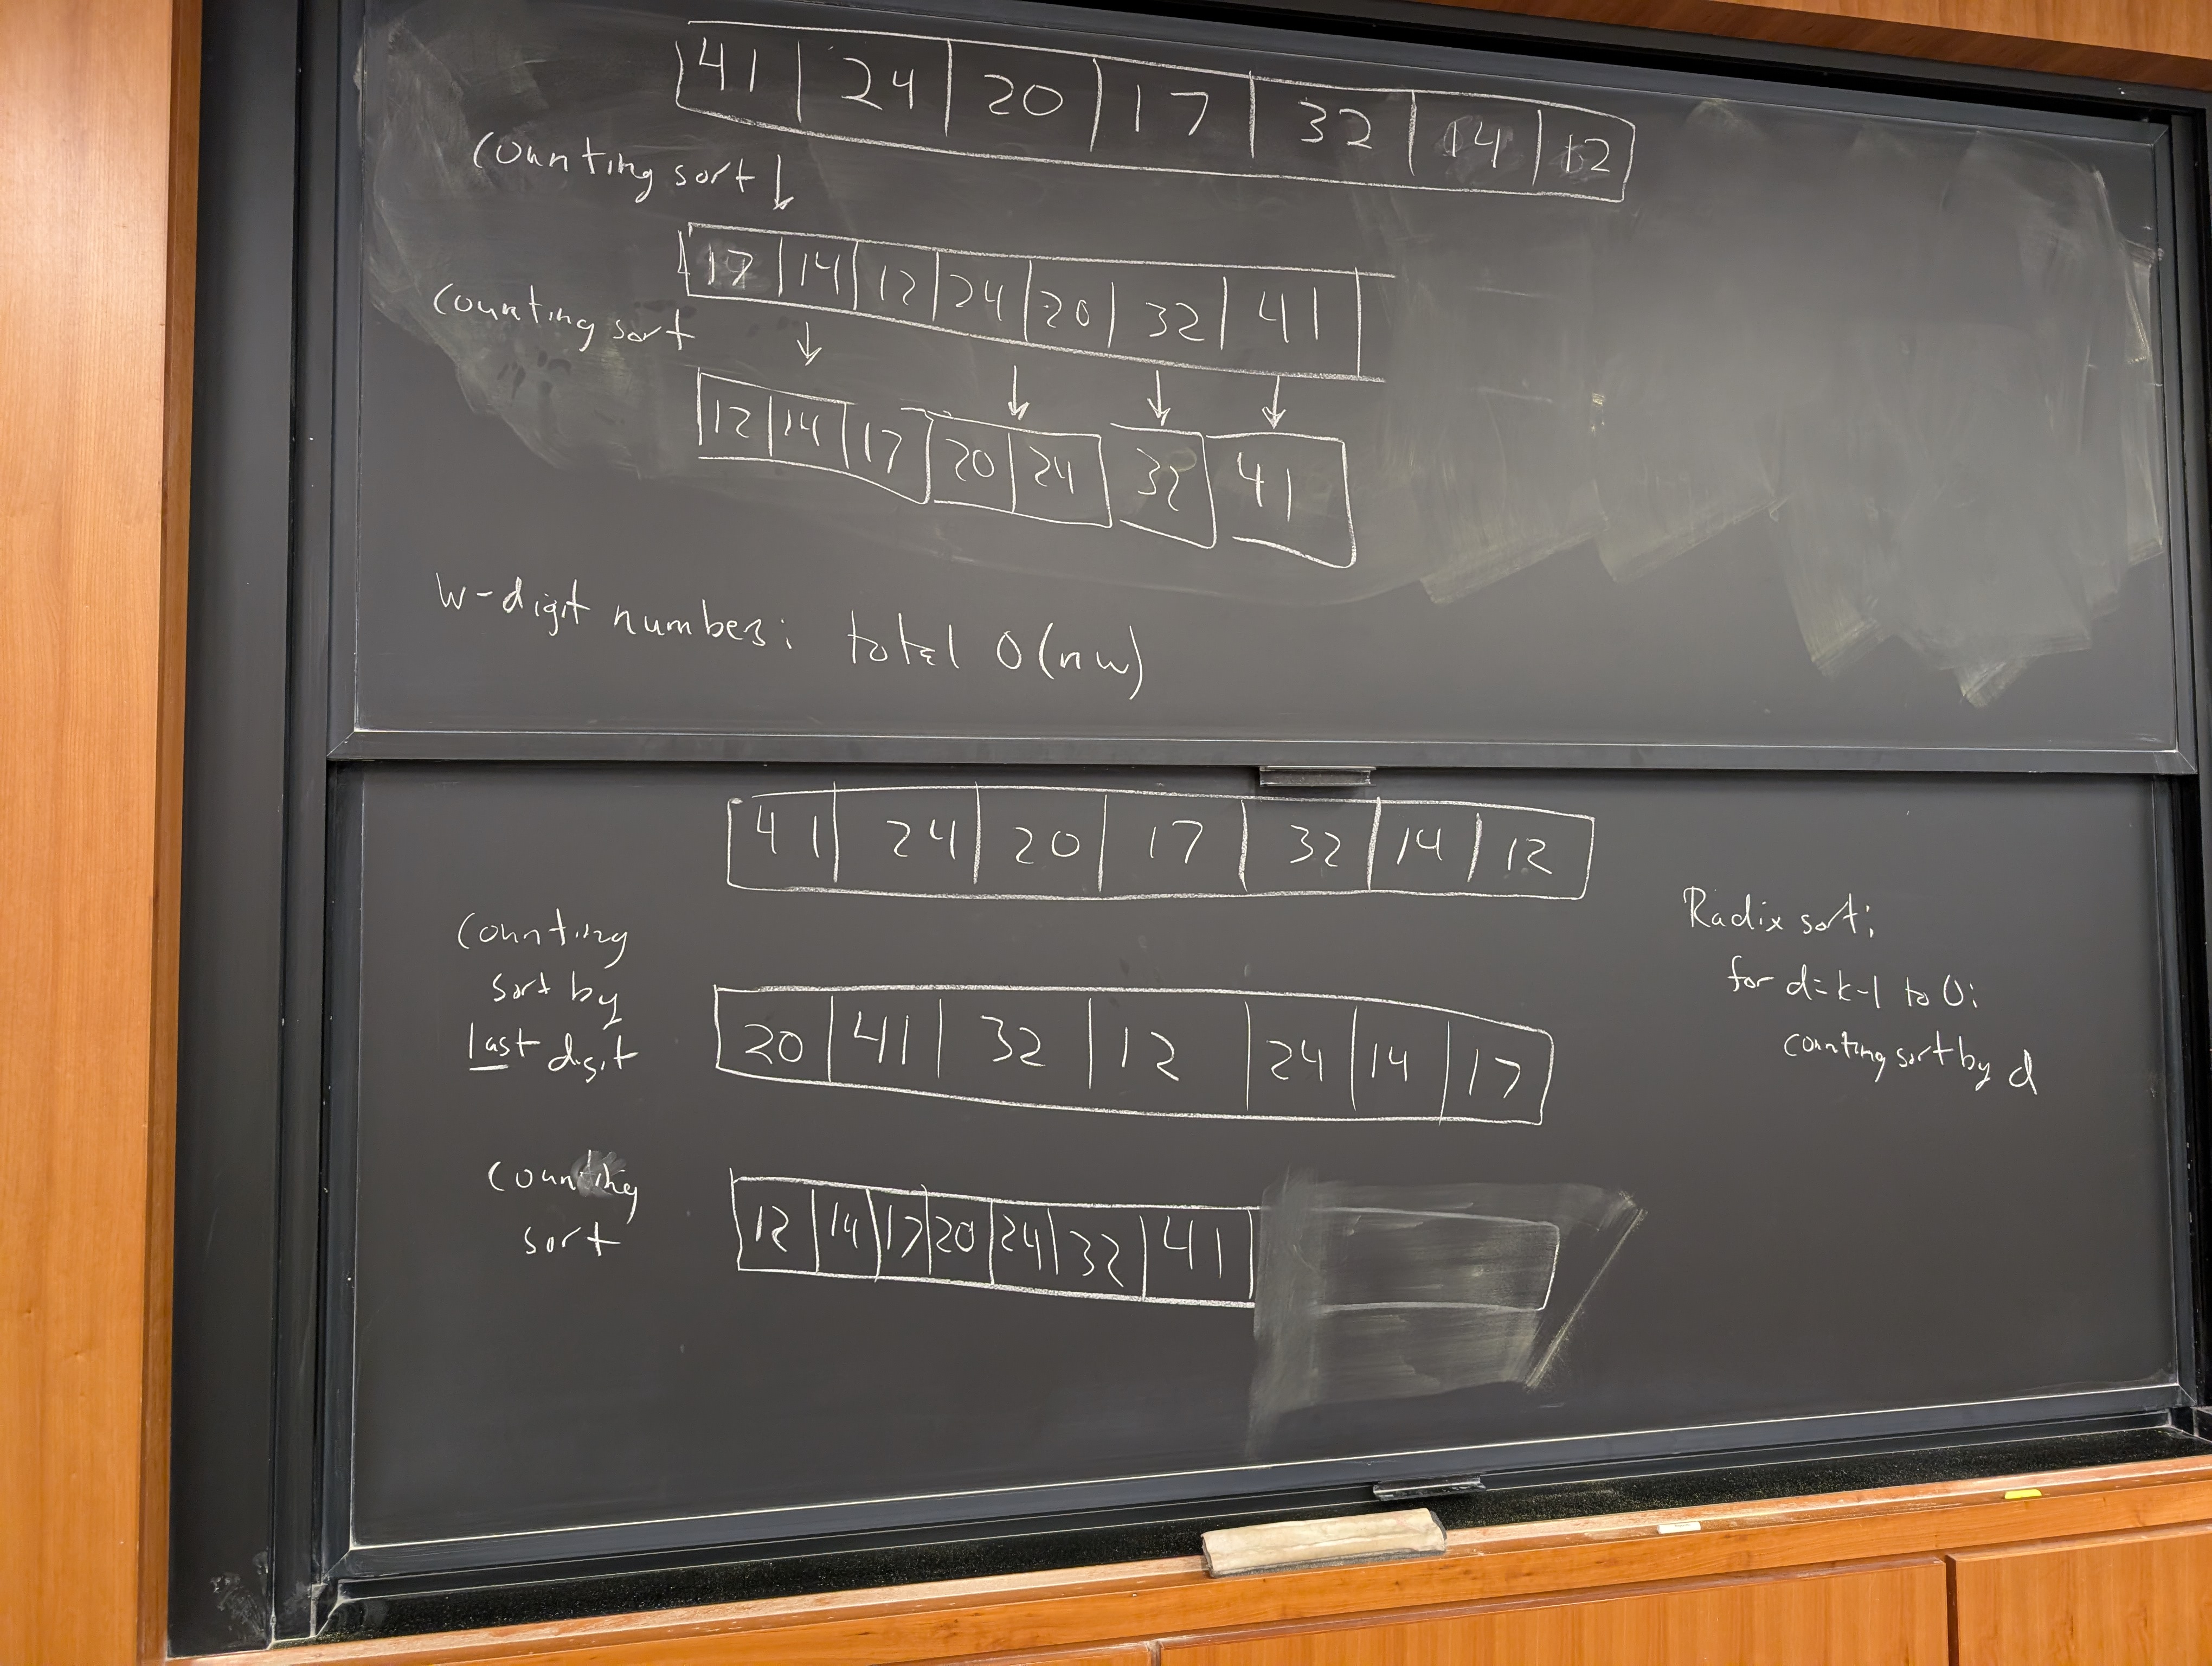 41 24 20 17 32 14 12
Counting sort ↓
17 14 12 24 20 32 41
counting sort
↓ ↓ ↓ ↓
12 14 17 20 24 32 41
w-digit numbers: total O(nw)
41 24 20 17 32 14 12
Counting
sort by
last digit
20 41 32 12 24 14 17
Counting
sort
12 14 17 20 24 32 41
Radix sort:
for d=k-1 to 0:
counting sort by d